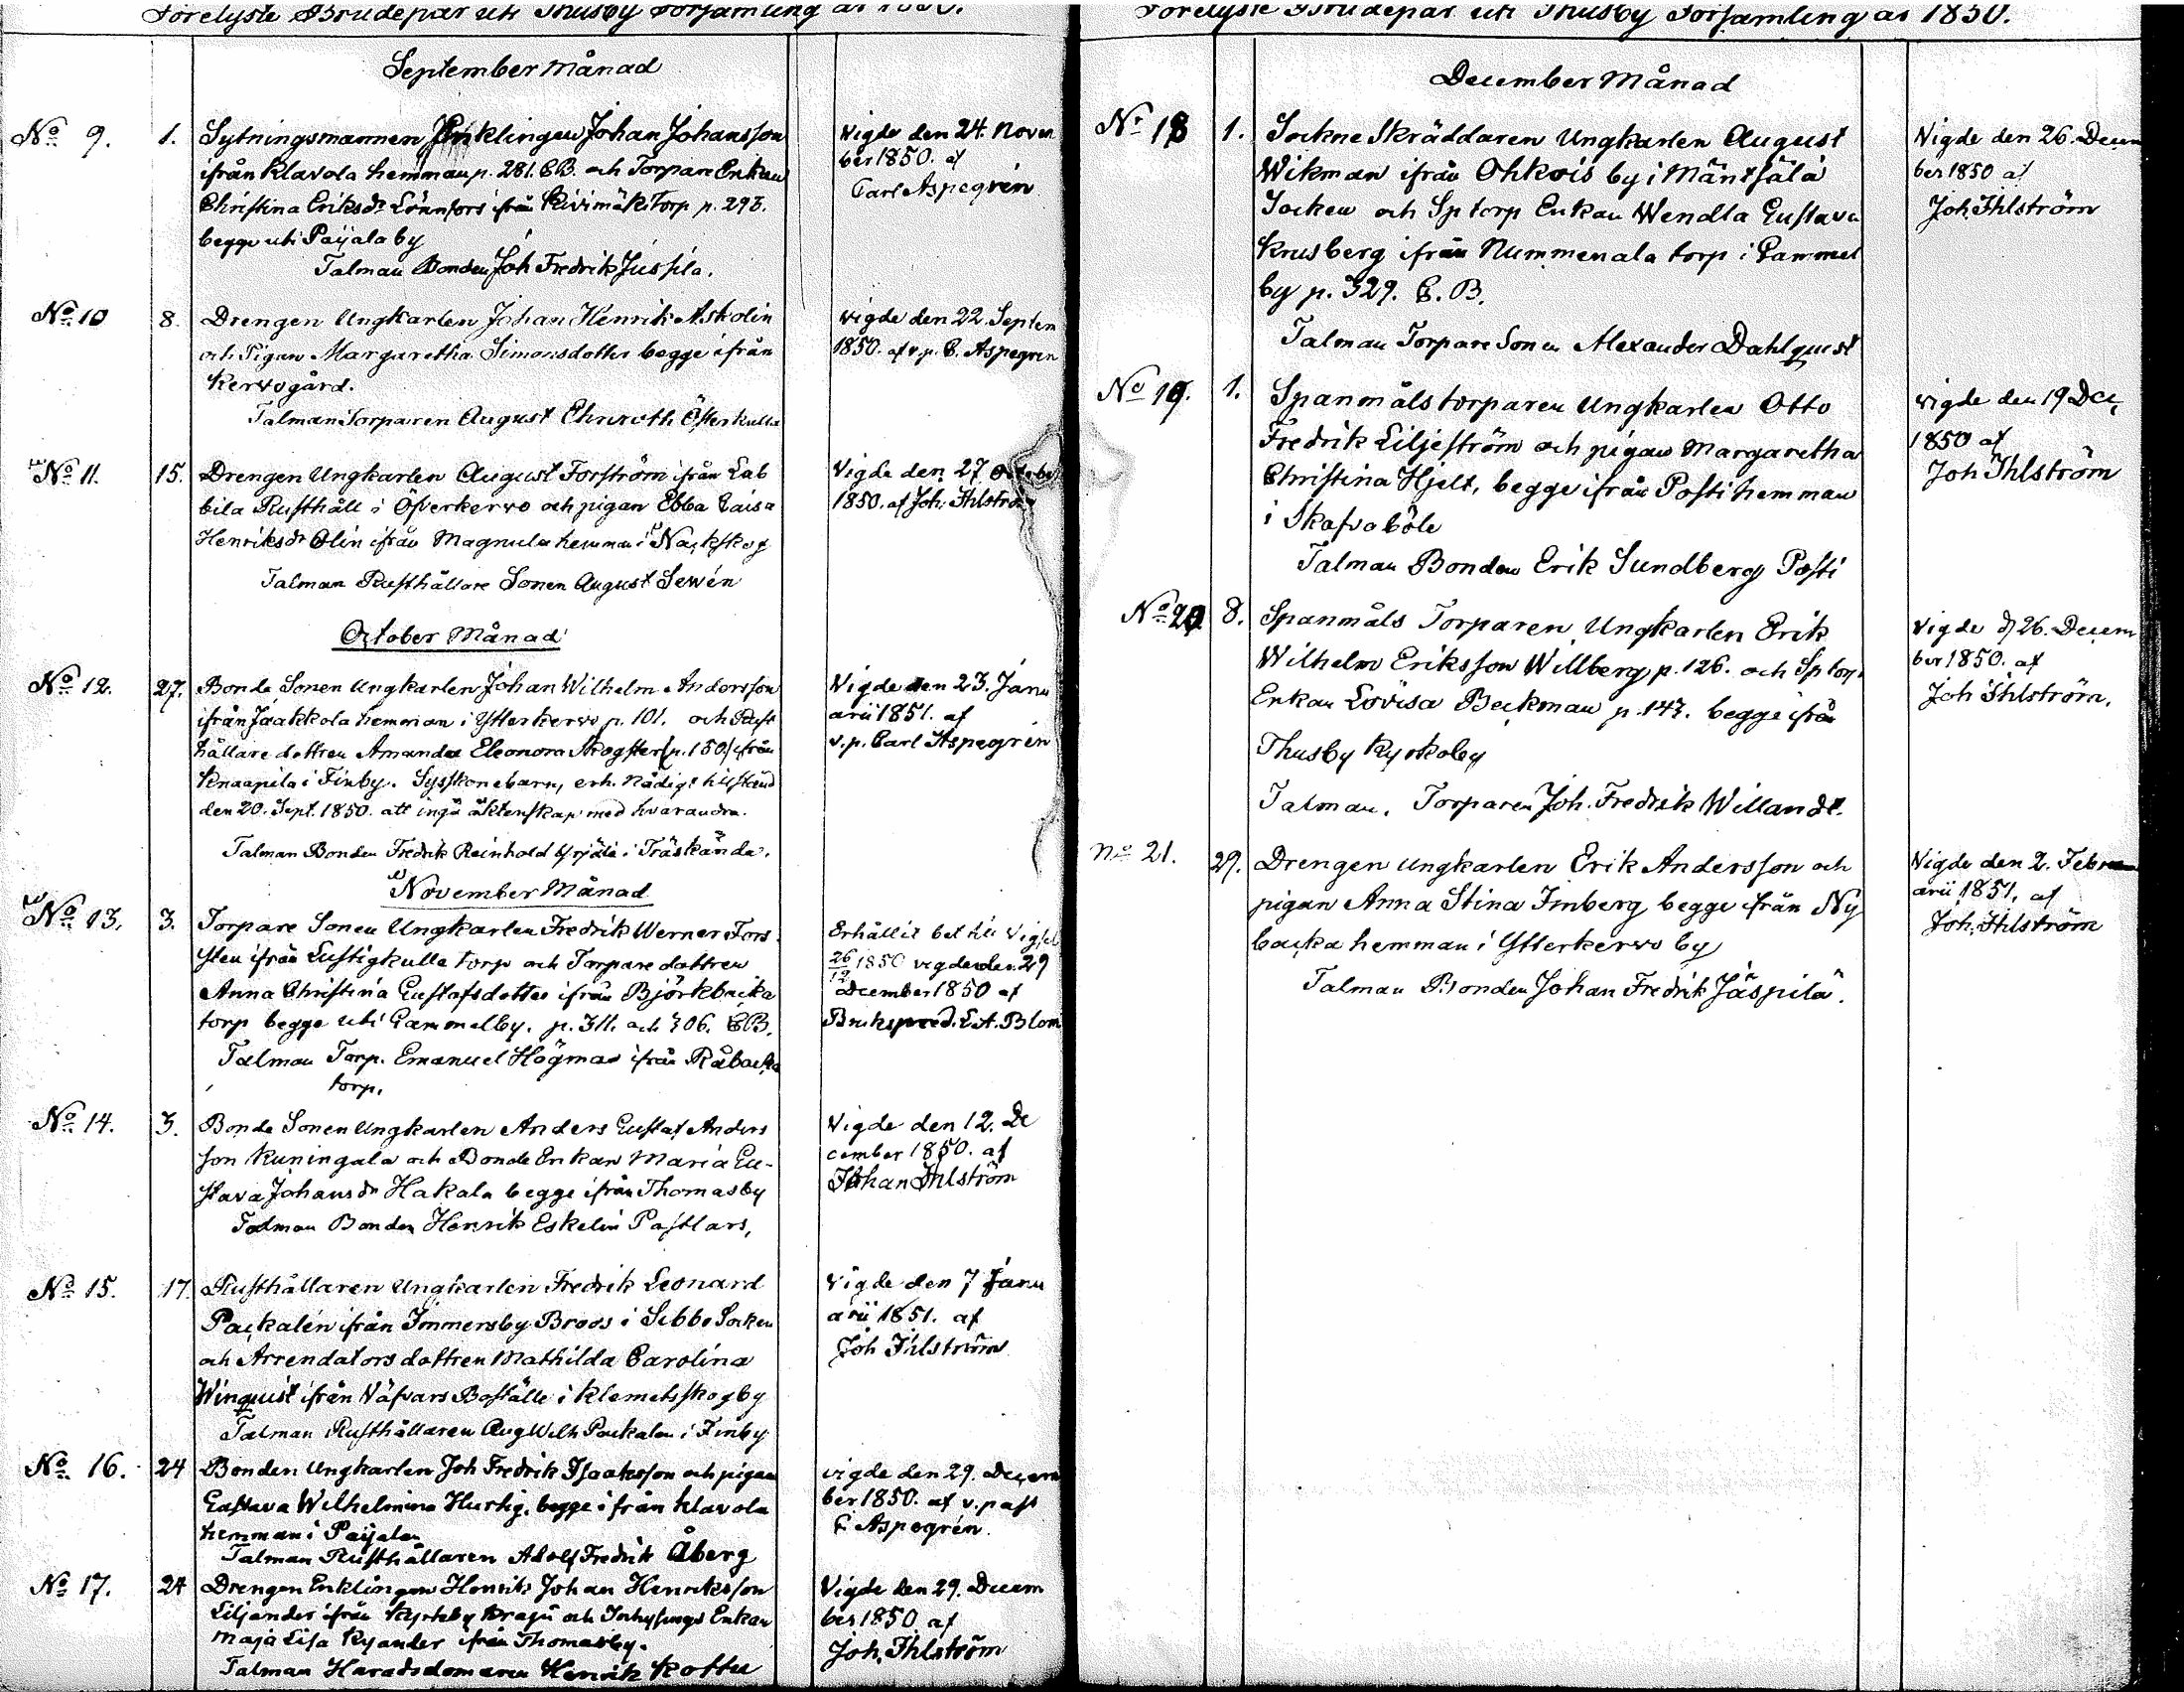 Förelyste Brudepar uti Thusby Församling år 1850.
September Månad
No 9. 1. Sytningsmannen Enklingen Johan Johansson
ifrån Klavola hemman p. 281. CB. och Torpare Enkan
Christina Eriksdr Lönnfors ifrån Kivimäki Torp p. 293.
begge uti Paijala by
Talman Bonden Joh Fredrik Jäspilä.
Vigde den 24. Novem
ber 1850. af
Carl Aspegrén
No 10 8. Drengen Ungkarlen Johan Henrik Askolin
och Pigan Margaretha Simonsdotter begge ifrån
Kervo gård.
Talman Torparen August Ehnroth Österkulla
vigde den 22. Septem
1850. af v.p. C. Aspegren
No 11. 15. Drengen Ungkarlen August Forsström ifrån Lab
bila Rusthåll i Öfverkervo och pigan Ebba Caisa
Henriksdr Olin ifrån Magnula hemman i Nackskog
Talman Rusthållare Sonen August Sewén
Vigde den 27 October
1850. af Joh. Ihlström
October Månad
No 12. 27. Bonde Sonen Ungkarlen Johan Wilhelm Andersson
ifrån Jäakkola hemman i Ytterkervo p. 101. och Rust
hållare dottren Amanda Eleonora Skogster (p. 150) ifrån
Knaapila i Finby. Sysskonebarn, erh. Nådigt tillstånd
den 20. Sept. 1850. att ingå äktenskap med hvarandra.
Talman Bonden Fredrik Reinhold Yrjälä i Träskända.
Vigde den 23. Janu
arii 1851. af
v.p. Carl Aspegrén
November Månad
No 13. 3. Torpare Sonen Ungkarlen Fredrik Werner Fors
sten ifrån Lustigkulla torp och Torpare dottren
Anna Christina Gustafsdotter ifrån Björkbacka
torp begge uti Gammelby. p. 311. och 306. CB.
Talman Torp. Emanuel Högman ifrån Råbacka
torp.
Erhållit bet till Vigsel
26/12 1850 vigde den 29
December 1850 af
Brukspred. E.A. Blom
No 14. 3. Bonde Sonen Ungkarlen Anders Gustaf Anders
son Kuningala och Bonde Enkan Maria Gu-
stava Johansdr Hakala begge ifrån Thomasby
Talman Bonden Henrik Eskelin Pastlars,
Vigde den 12. De
cember 1850. af
Johan Ihlström
No 15. 17. Rusthållaren Ungkarlen Fredrik Leonard
Packalén ifrån Immersby Broos i Sibbo Socken
och Arrendators dottren Mathilda Carolina
Winquist ifrån Näfvars Boställe i Klemetsskog by
Talman Rusthållaren Aug Wilh Packalen i Finby
Vigde den 7 Janu
arii 1851. af
Joh Ihlström
No 16. 24 Bonden Ungkarlen Joh Fredrik Isaaksson och pigan
Gustava Wilhelmina Hurtig. begge ifrån Klavola
hemman i Paijala
Talman Rusthållaren Adolf Fredrik Åberg
vigde den 29. Decem
ber 1850. af v. past
C. Aspegrén.
No 17. 24 Drengen Enklingen Henrik Johan Henriksson
Liljander ifrån Kyrkoby Kragu och Inhysings Enkan
Maja Lisa Kyander ifrån Thomasby.
Talman Haradsdomaren Henrik Kottu
Vigde den 29. Decem
ber 1850 af
Joh, Ihlström
Förelyste Brudepar uti Thusby Församling år 1850.
December Månad
No 18 1. Sockne Skräddaren Ungkarlen August
Wikman ifrån Ohkois by i Mäntsälä
Socken och Sp torp Enkan Wendla Gustava
Krusberg ifrån Nummenala torp i Gammel
by p. 329. C.B.
Talman Torpare Sonen Alexander Dahlquist
Vigde den 26. Decem
ber 1850 af
Joh, Ihlström
No 19. 1. Spanmåls torparen Ungkarlen Otto
Fredrik Liljeström och pigan Margaretha
Christina Hjelt, begge ifrån Posti hemman
i Skafvaböle
Talman Bonden Erik Sundberg Posti
vigde den 19 Dec,
1850 af
Joh Ihlström
No 20 8. Spanmåls Torparen Ungkarlen Erik
Wilhelm Eriksson Willberg p. 126. och Sp torp.
Enkan Lovisa Beckman p. 147. begge ifrån
Thusby Kyrkoby
Talman. Torparen Joh. Fredrik Willandt.
Vigde d 26. Decem
ber 1850. af
Joh Ihlström.
No 21. 29. Drengen Ungkarlen Erik Andersson och
pigan Anna Stina Finberg begge ifrån Ny
backa hemman i Ytterkervo by
Talman Bonden Johan Fredrik Jäspilä.
Vigde den 2. Febru
arii 1851, af
Joh, Ihlström